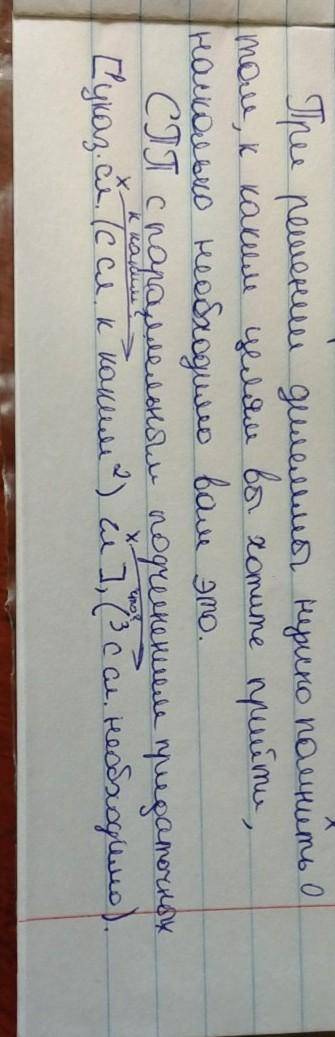 При решении дилеммы нужно помнить о
том, к каким целям вы хотите прийти,
насколько необходимо вам это.
СПП с параллельным подчинением придаточных
х к каким? х что?
[указ. сл. (с сл. к каким²) и], (³ с сл. необходимо).